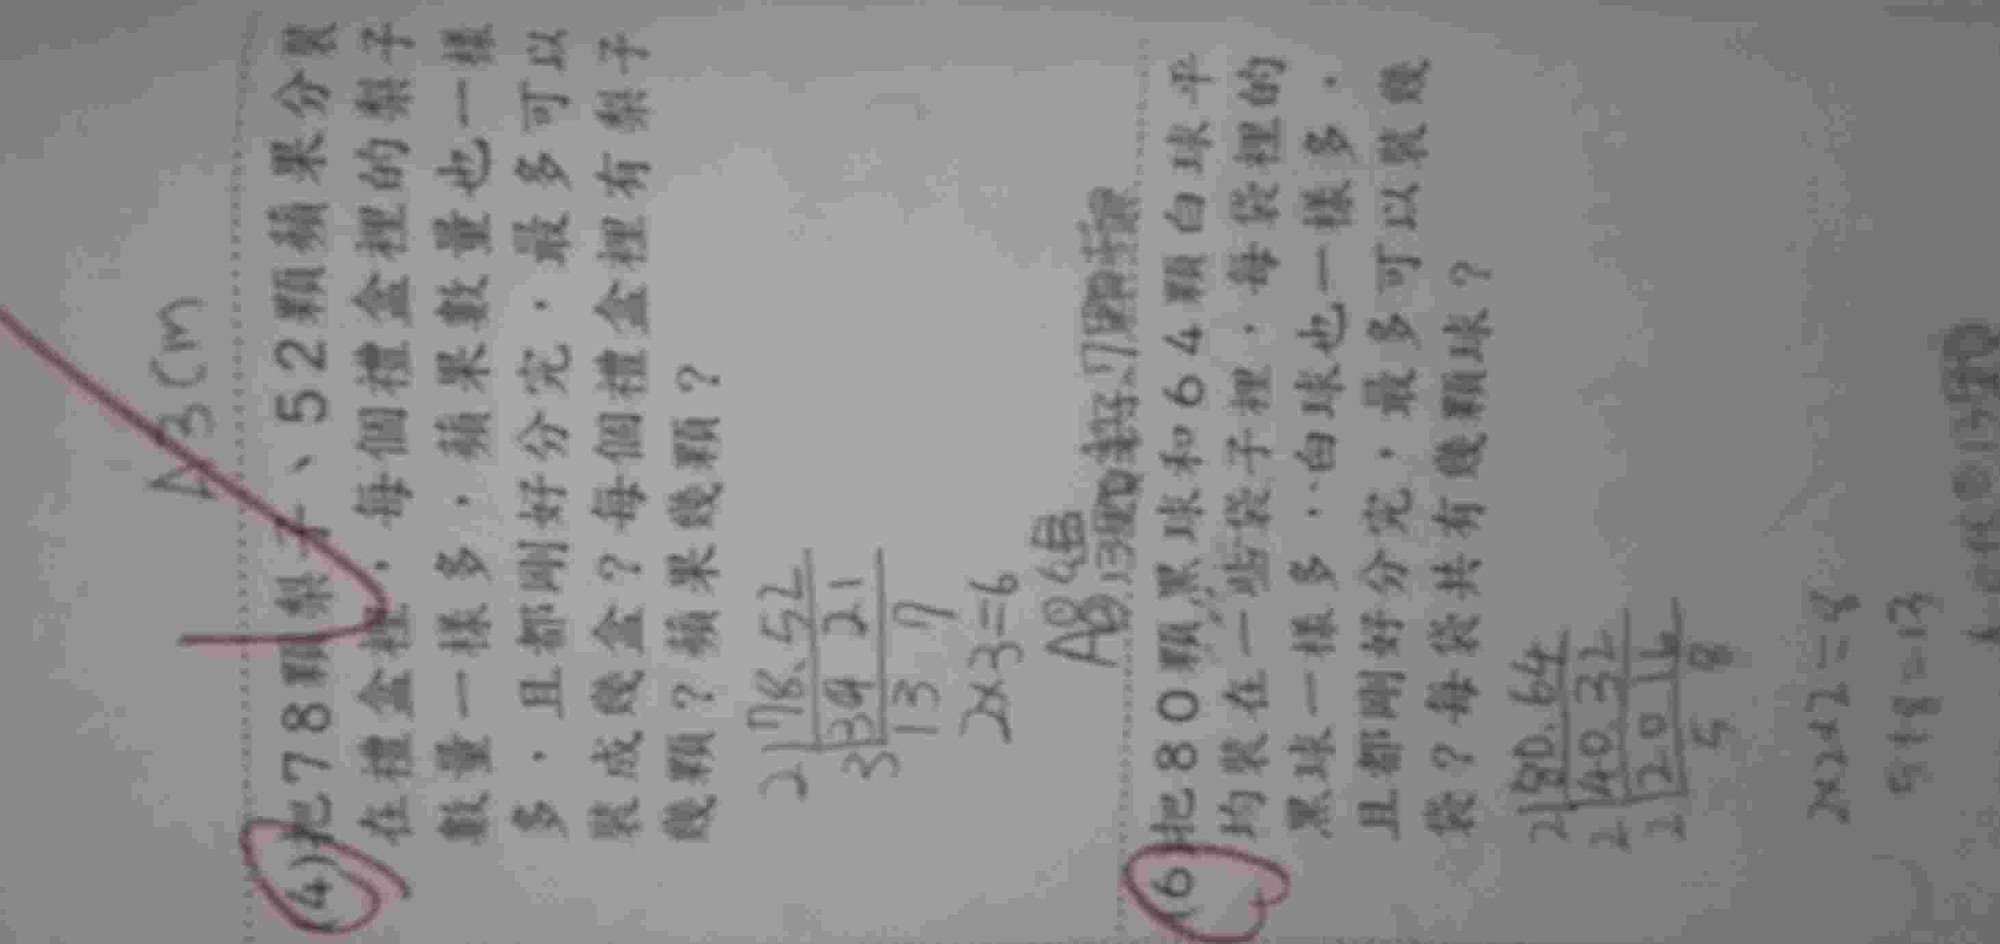 A3cm
(4)把78顆梨子、52顆蘋果分裝
在禮盒裡,每個禮盒裡的梨子
數量一樣多,蘋果數量也一樣
多,且都剛好分完,最多可以
裝成幾盒?每個禮盒裡有梨子
幾顆?蘋果幾顆?
2 78.52
3 39 21
13 7
2×3=6
A
(6)把80顆黑球和64顆白球平
均裝在一些袋子裡,每袋裡的
黑球一樣多,白球也一樣多,
且都剛好分完,最多可以裝幾
袋?每袋共有幾顆球?
2 80.64
2 40.32
2 20 16
5 8
2×2×2=8
5+8=13